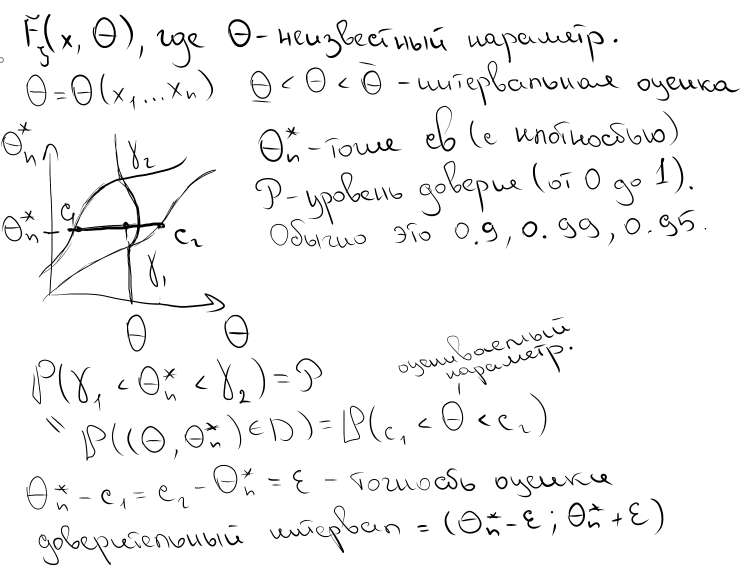 F_ξ(x, Θ), где Θ - неизвестный параметр.
Θ = Θ(x₁...xₙ) Θ̲ < Θ < Θ̅ - интервальная оценка
Θₙ* - тоже св (с плотностью)
P - уровень доверия (от 0 до 1).
Обычно это 0.9, 0.99, 0.95.
Θₙ*
γ₂
Θₙ*
c₁
c₂
γ₁
Θ Θ
оцениваемый
параметр.
P(γ₁ < Θₙ* < γ₂) = P
" P((Θ, Θₙ*) ∈ D) = P(c₁ < Θ < c₂)
Θₙ* - c₁ = c₂ - Θₙ* = ε - точность оценки
доверительный интервал = (Θₙ* - ε ; Θₙ* + ε)